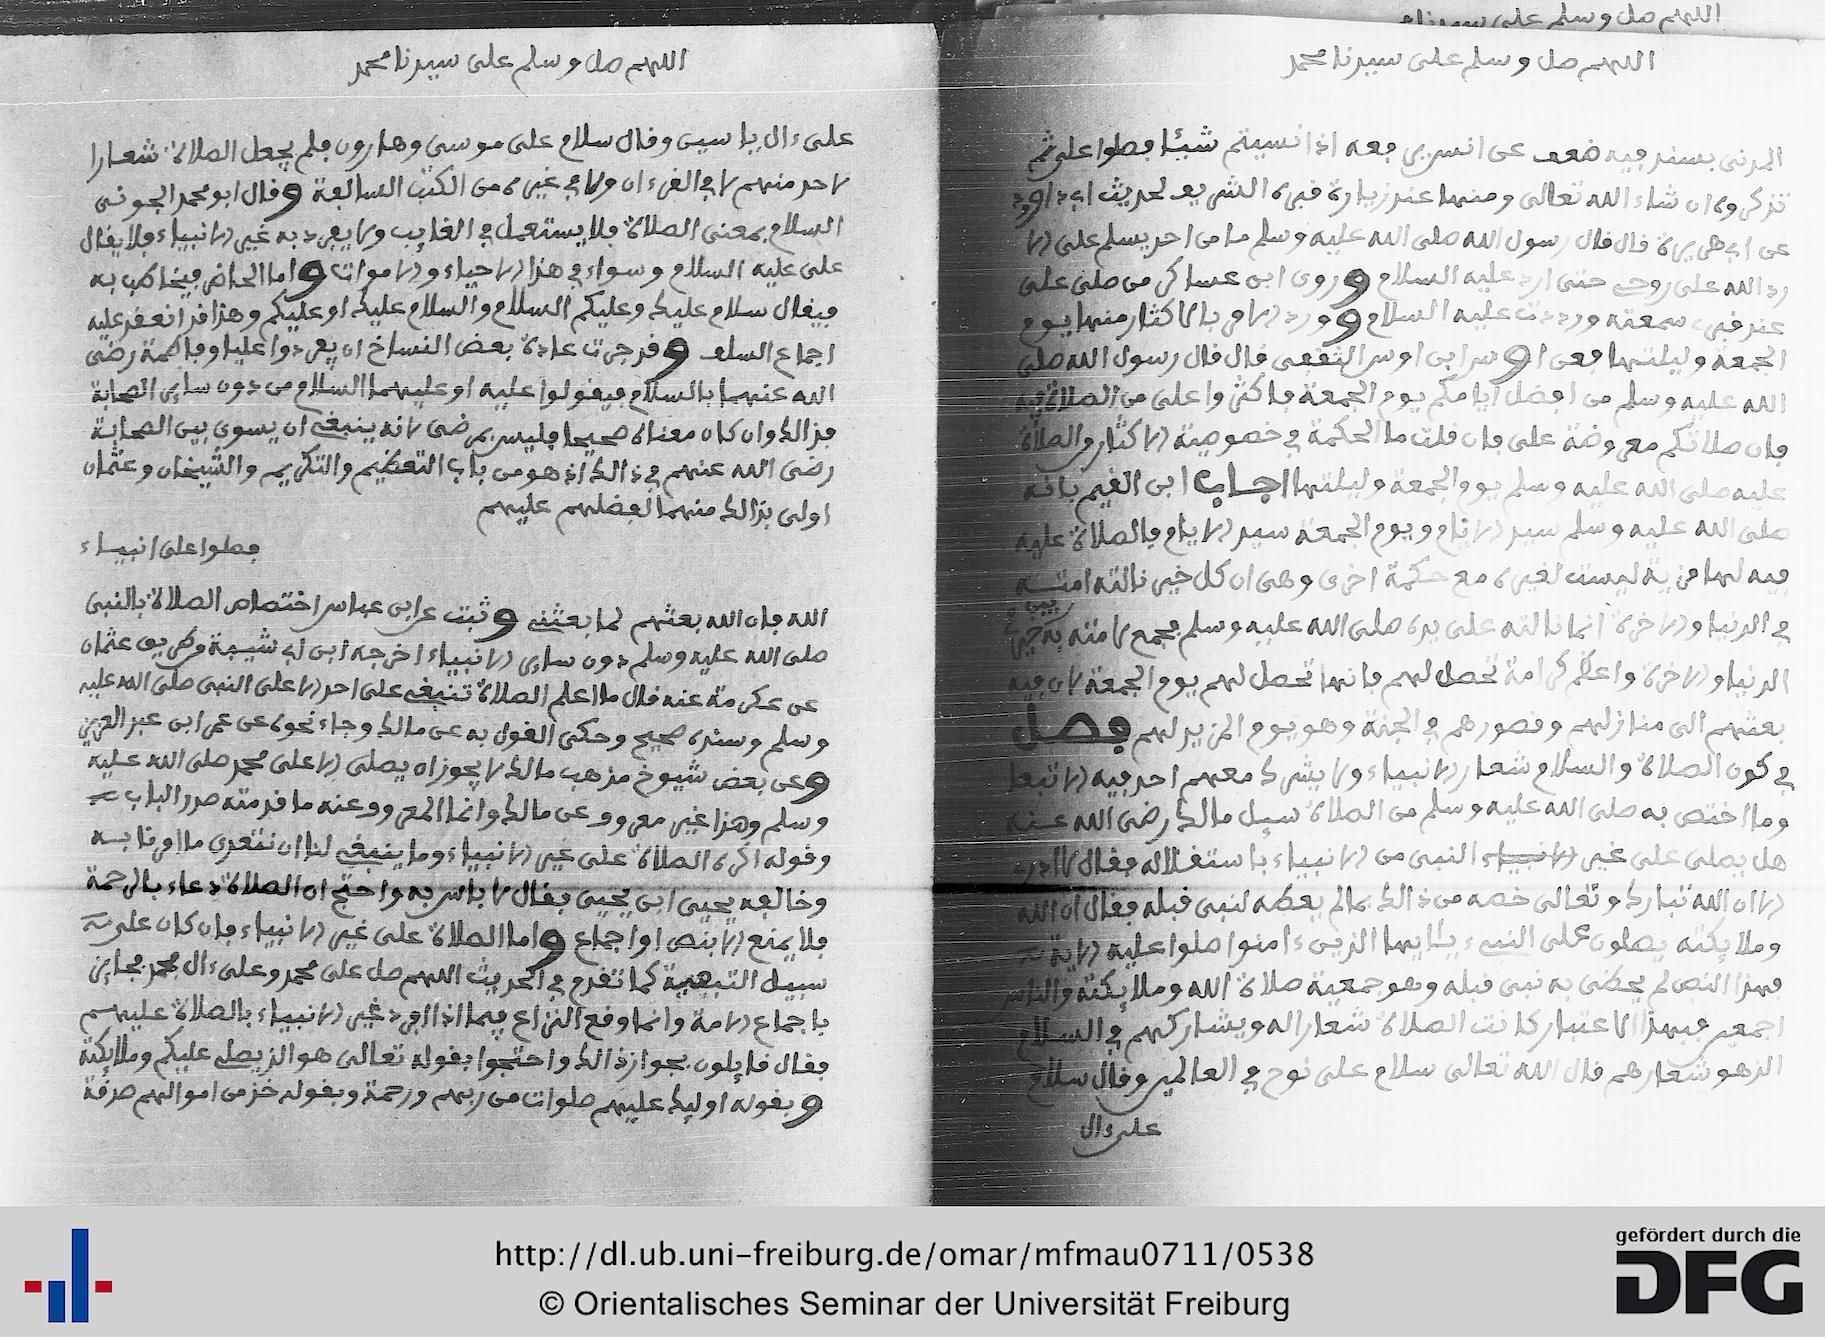 اللهم صل وسلم على سيدنا
اللهم صل وسلم على سيدنا محمد
المدنى بسند فيه ضعف عن انس رفعه اذا نسيتم شيئا فصلوا على
تذكروه ان شاء الله تعالى ومنها عند زيارة قبره الشريف لحديث ابى داوود
عن ابى هريرة قال قال رسول الله صلى الله عليه وسلم ما من احد يسلم على الا
رد الله على روحى حتى ارد عليه السلام وروى ابن عساكر من صلى على
عند قبرى سمعته ورددت عليه السلام وورد الامر بالاكثار منها يوم
الجمعة وليلتها فعن اوس ابن اوس الثقفى قال قال رسول الله صلى
الله عليه وسلم من افضل ايامكم يوم الجمعة فاكثروا على من الصلاة فيه
فان صلاتكم معروضة على فان قلت ما الحكمة فى خصوصية الاكثار والصلاة
عليه صلى الله عليه وسلم يوم الجمعة وليلتها اجاب ابن القيم بانه
صلى الله عليه وسلم سيد الانام ويوم الجمعة سيد الايام فالصلاة عليه
فيه لها مزية ليست لغيره مع حكمة اخرى وهى ان كل خير نالته امته
فى الدنيا والاخرة انما نالته على يده صلى الله عليه وسلم فجمع لامته به خيرى
الدنيا والاخرة واعظم كرامة تحصل لهم فانها تحصل لهم يوم الجمعة لان فيه
بعثهم الى منازلهم وقصورهم فى الجنة وهو يوم المزيد لهم فصل
فى كون الصلاة والسلام شعار الانبياء ولا يشرك معهم احد فيه الا تبعا
وما اختص به صلى الله عليه وسلم من الصلاة سيل مالك رضى الله عنه
هل يصلى على غير الانبياء النبى من الانبياء باستقلاله فقال لا ادرى
الا ان الله تبارك وتعالى خصه من ذالك بما لم يعطه لنبى قبله فقال ان الله
وملايكته يصلون على النبىء يايها الذين ءامنوا صلوا عليه الاية
فهذا النص لم يحظى به نبى قبله وهو جمعية صلاة الله وملايكته والناس
اجمعين فبهذا الاعتبار كانت الصلاة شعارا له ويشاركهم فى السلام
الذ هو شعارهم قال الله تعالى سلام على نوح فى العالمين وقال سلام
على ءال
اللهم صل وسلم على سيدنا محمد
على ءال ياسين وقال سلام على موسى وهارون فلم يجعل الصلاة شعارا
لاحد منهم لا فى القرءان ولا فى غيره من الكتب السالفة وقال ابو محمد الجونى
السلام بمعنى الصلاة فلا يستعمل فى الغايب ولا يفرد به غير الانبياء فلا يقال
على عليه السلام وسواء فى هذا الاحياء والاموات واما الحاضر فيخاطب به
فيقال سلام عليك وعليكم السلام والسلام عليك او عليكم وهذا قد انعقد عليه
اجماع السلف وقد جرت عادة بعض النساخ ان يفردوا عليا وفاطمة رضى
الله عنهما بالسلام فيقولوا عليه او عليهما السلام من دون ساير الصحابة
فذالك وان كان معناه صحيحا فليس بمرضى لانه ينبغى ان يسوى بين الصحابة
رضى الله عنهم فى ذالك اذ هو من باب التعظيم والتكريم والشيخان وعثمان
اولى بذالك منهما لفضلهم عليهم
فصلوا على انبياء
الله فان الله بعثهم لما بعثنى وثبت عن ابن عباس اختصاص الصلاة بالنبى
صلى الله عليه وسلم دون ساير الانبياء اخرجه ابن ابى شيبة من طريق عثمان
عن عكرمة عنه قال ما اعلم الصلاة تنبغى على احد الا على النبى صلى الله عليه
وسلم وسنده صحيح وحكى القول به عن مالك وجاء نحوه عن عمر ابن عبد العزيز
وعن بعض شيوخ مذهب مالك لا يجوز ان يصلى الا على محمد صلى الله عليه
وسلم وهذا غير معروف عن مالك وانما المعروف عنه ما قدمته صدر الباب
وقوله اكره الصلاة على غير الانبياء وما ينبغى لنا ان نتعدى ما امرنا به
وخالفه يحيى ابن يحيى فقال لا باس به واحتج ان الصلاة دعاء بالرحمة
فلا يمنع الا بنص او اجماع واما الصلاة على غير الانبياء فان كان على
سبيل التبعية كما تقدم فى الحديث اللهم صل على محمد وعلى ءال محمد فجايز
باجماع الامة وانما وقع النزاع فيما اذا افرد غير الانبياء بالصلاة عليهم
فقال قايلون بجواز ذالك واحتجوا بقوله تعالى هو الذ يصلى عليكم وملايكته
وبقوله اوليك عليهم صلوات من ربهم ورحمة وبقوله خذ من اموالهم صدقة
http://dl.ub.uni-freiburg.de/omar/mfmau0711/0538
© Orientalisches Seminar der Universität Freiburg
gefördert durch die
DFG